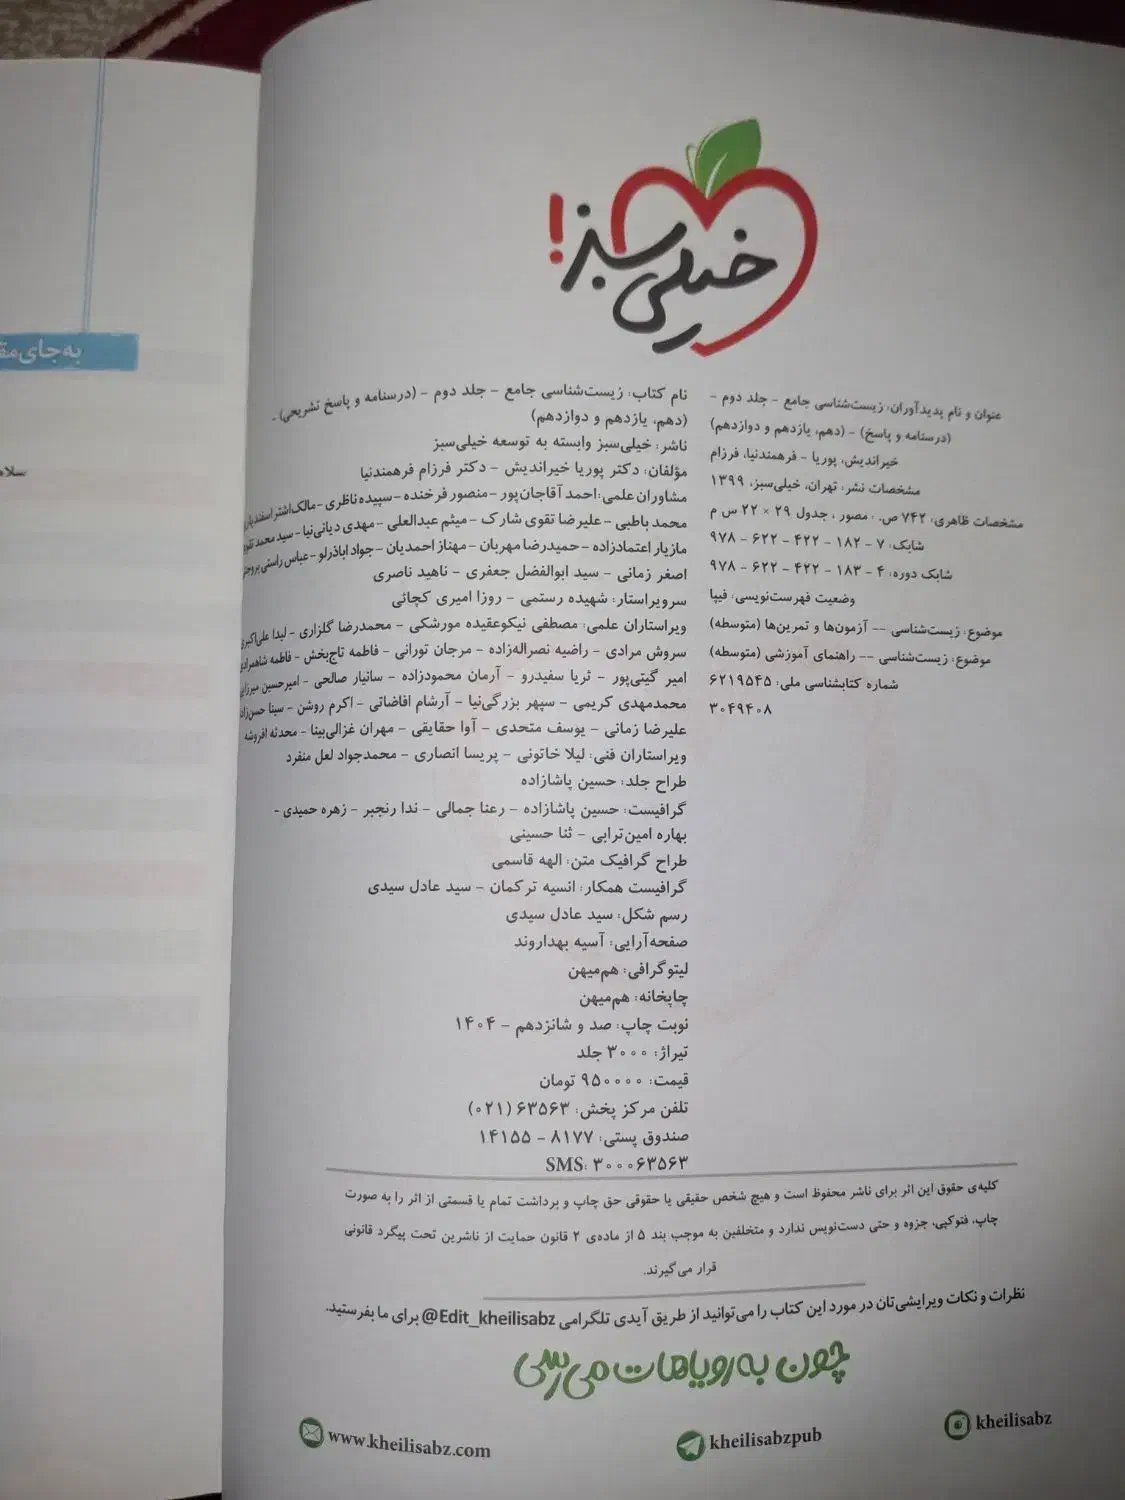 به‌جای
سلام
خیلی سبز!
عنوان و نام پدیدآوران: زیست‌شناسی جامع - جلد دوم -
(درسنامه و پاسخ) - (دهم، یازدهم و دوازدهم)
خیراندیش، پوریا - فرهمندنیا، فرزام
مشخصات نشر: تهران، خیلی‌سبز، ۱۳۹۹
مشخصات ظاهری: ۷۴۲ ص. : مصور ، جدول ۲۹ × ۲۲ س م
شابک: ۷ - ۱۸۲ - ۴۲۲ - ۶۲۲ - ۹۷۸
شابک دوره: ۴ - ۱۸۳ - ۴۲۲ - ۶۲۲ - ۹۷۸
وضعیت فهرست‌نویسی: فیپا
موضوع: زیست‌شناسی -- آزمون‌ها و تمرین‌ها (متوسطه)
موضوع: زیست‌شناسی -- راهنمای آموزشی (متوسطه)
شماره کتابشناسی ملی: ۶۲۱۹۵۴۵
۳۰۴۹۴۰۸
نام کتاب: زیست‌شناسی جامع - جلد دوم - (درسنامه و پاسخ تشریحی) -
(دهم، یازدهم و دوازدهم)
ناشر: خیلی‌سبز وابسته به توسعه خیلی‌سبز
مؤلفان: دکتر پوریا خیراندیش - دکتر فرزام فرهمندنیا
مشاوران علمی: احمد آقاجان‌پور - منصور فرخنده - سپیده ناظری - مالک‌اشتر اسفندیاری
محمد باطبی - علیرضا تقوی شارک - میثم عبدالعلی - مهدی دیانی‌نیا - سید محمد
مازیار اعتمادزاده - حمیدرضا مهربان - مهناز احمدیان - جواد اباذرلو - عباس راستی بروجنی
اصغر زمانی - سید ابوالفضل جعفری - ناهید ناصری
سرویراستار: شهیده رستمی - روزا امیری کچائی
ویراستاران علمی: مصطفی نیکوعقیده مورشکی - محمدرضا گلزاری - لیدا علی‌اکبری
سروش مرادی - راضیه نصراله‌زاده - مرجان تورانی - فاطمه تاج‌بخش - فاطمه شاهمرادی
امیر گیتی‌پور - ثریا سفیدرو - آرمان محمودزاده - سانیار صالحی - امیرحسین میرزایی
محمدمهدی کریمی - سپهر بزرگی‌نیا - آرشام افاضاتی - اکرم روشن - سینا حسن‌زاده
علیرضا زمانی - یوسف متحدی - آوا حقایقی - مهران غزالی‌بینا - محدثه افروشه
ویراستاران فنی: لیلا خاتونی - پریسا انصاری - محمدجواد لعل منفرد
طراح جلد: حسین پاشازاده
گرافیست: حسین پاشازاده - رعنا جمالی - ندا رنجبر - زهره حمیدی -
بهاره امین‌ترابی - ثنا حسینی
طراح گرافیک متن: الهه قاسمی
گرافیست همکار: انسیه ترکمان - سید عادل سیدی
رسم شکل: سید عادل سیدی
صفحه‌آرایی: آسیه بهداروند
لیتوگرافی: هم‌میهن
چاپخانه: هم‌میهن
نوبت چاپ: صد و شانزدهم - ۱۴۰۴
تیراژ: ۳۰۰۰ جلد
قیمت: ۹۵۰۰۰۰ تومان
تلفن مرکز پخش: ۶۳۵۶۳ (۰۲۱)
صندوق پستی: ۸۱۷۷ - ۱۴۱۵۵
SMS: ۳۰۰۰۶۳۵۶۳
کلیه‌ی حقوق این اثر برای ناشر محفوظ است و هیچ شخص حقیقی یا حقوقی حق چاپ و برداشت تمام یا قسمتی از اثر را به صورت
چاپ، فتوکپی، جزوه و حتی دست‌نویس ندارد و متخلفین به موجب بند ۵ از ماده‌ی ۲ قانون حمایت از ناشرین تحت پیگرد قانونی
قرار می‌گیرند.
نظرات و نکات ویرایشی‌تان در مورد این کتاب را می‌توانید از طریق آیدی تلگرامی @Edit_kheilisabz برای ما بفرستید.
چون به رویاهات می‌رسی
www.kheilisabz.com
kheilisabzpub
kheilisabz